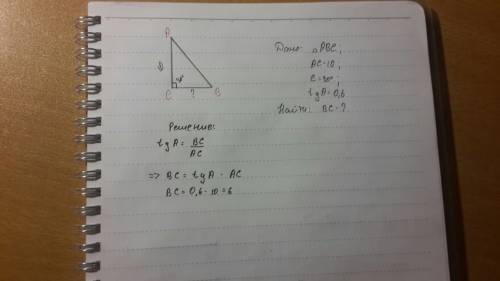 A
10
90°
C ? B
Дано: △ABC;
AC=10;
C=90°;
tg A=0,6
Найти: BC-?
Решение:
tg A = BC/AC
=> BC = tg A · AC
BC = 0,6 · 10 = 6